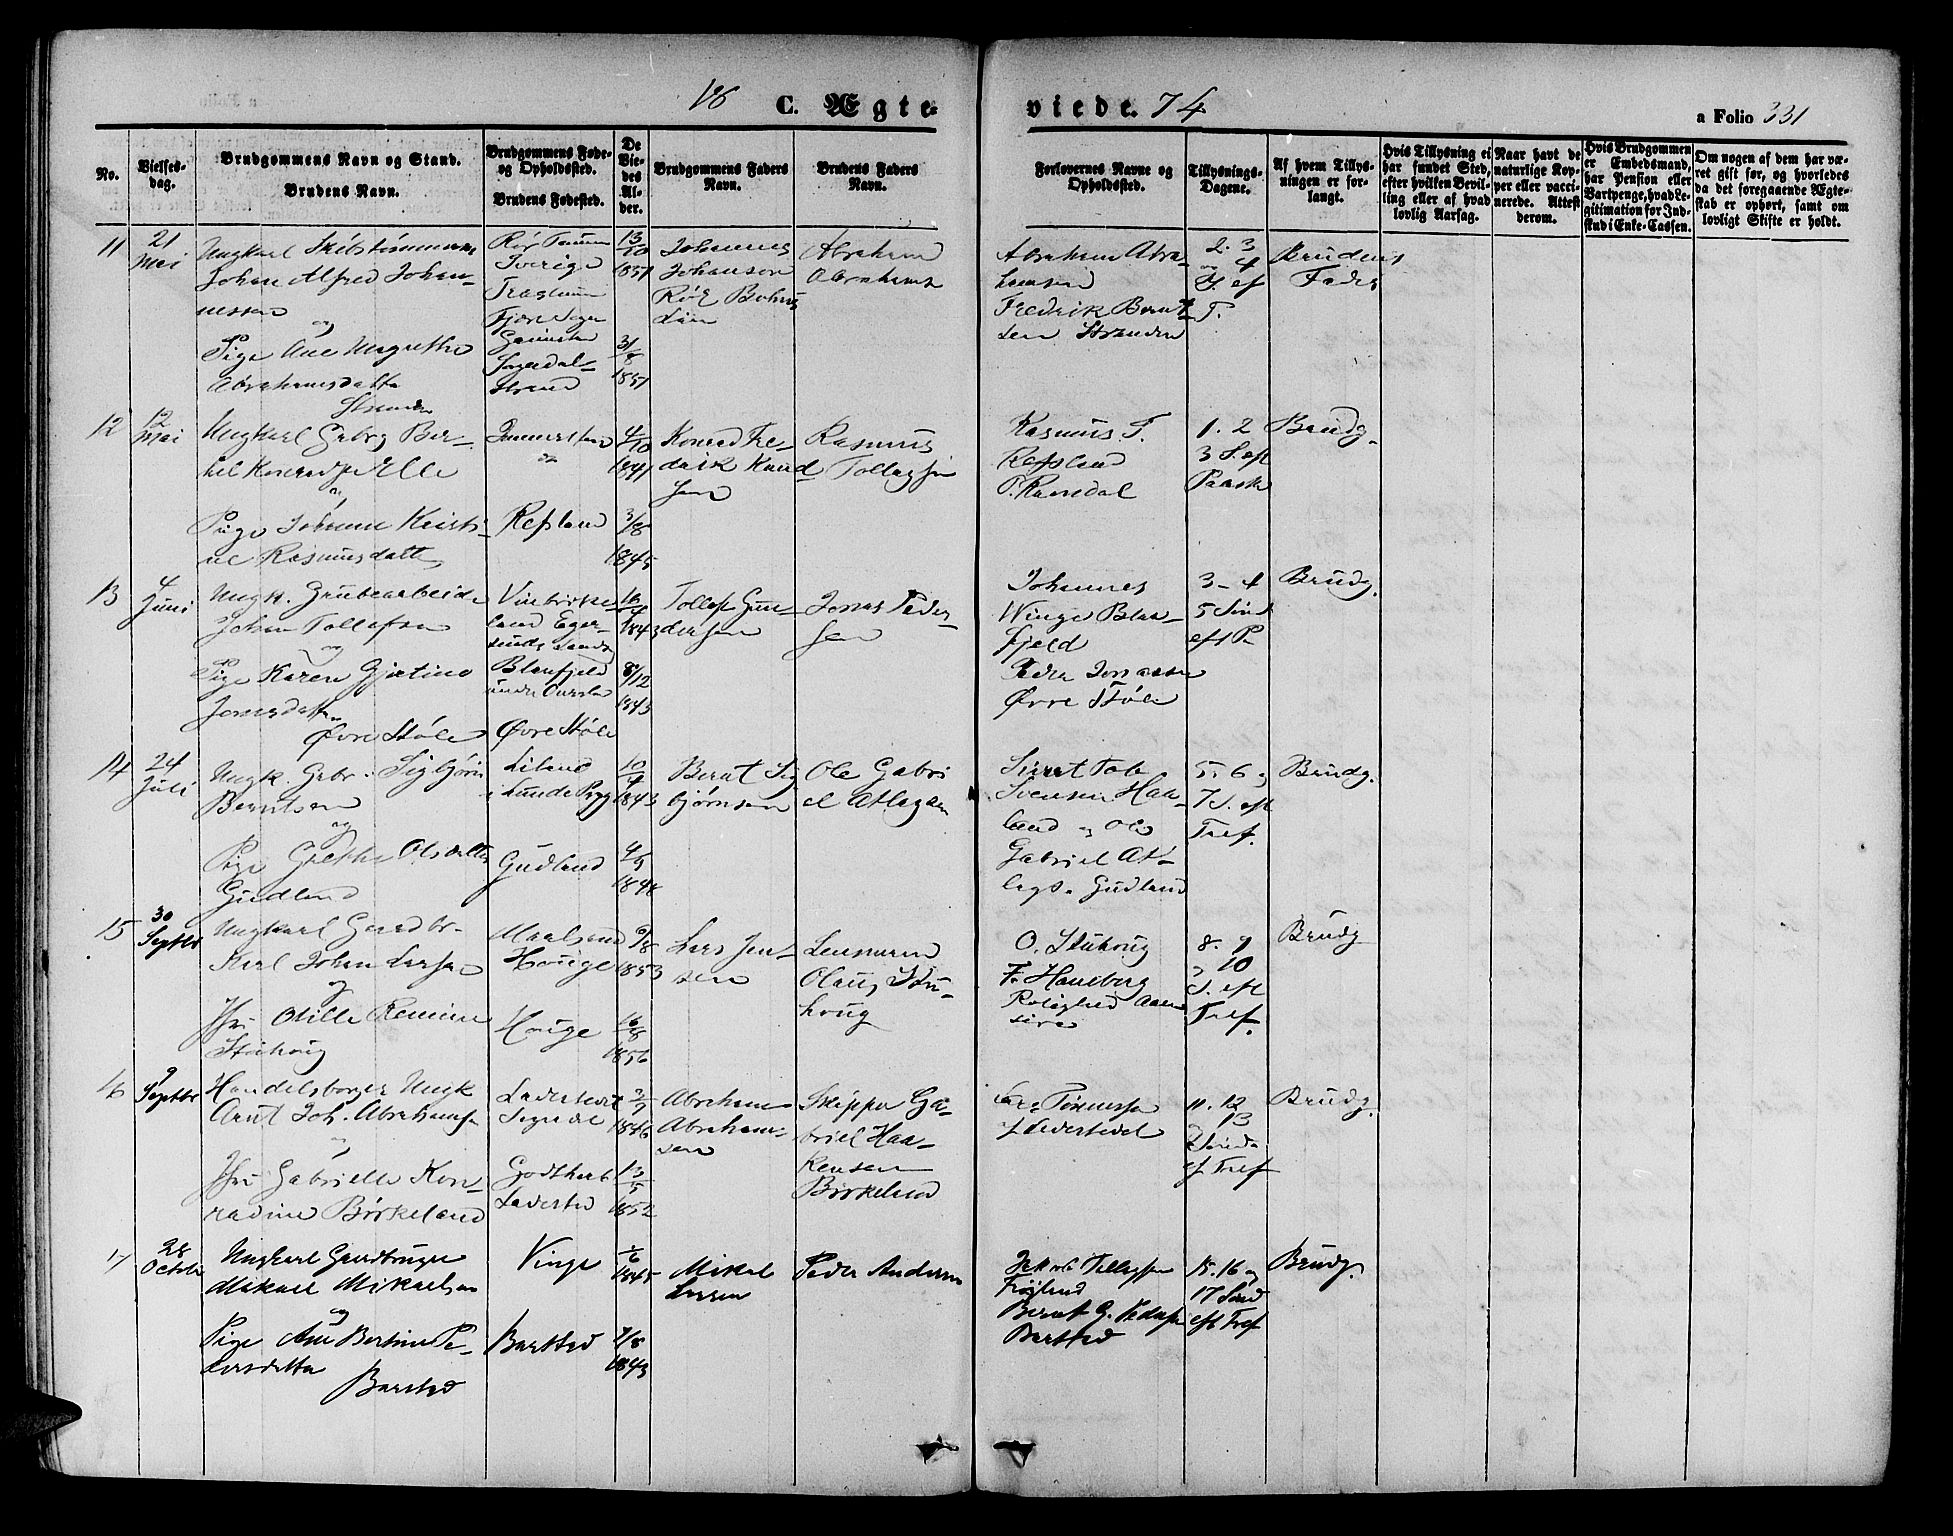 18 C. Ægte- viede. 74
a Folio 331
No.
Vielses-
dag.
Brudgommens Navn og Stand.
Brudens Navn.
Brudgommens Føde-
og Opholdssted.
Brudens Fødested.
De
Vie-
des
Al-
der.
Brudgommens Faders
Navn.
Brudens Faders
Navn.
Forlovernes Navne og
Opholdssted.
Tillysnings-
Dagene.
Af hvem Tillys-
ningen er for-
langt.
Hvis Tillysning ei
har fundet Sted,
efter hvilken Bevil-
ling eller af hvad
lovlig Aarsag.
Naar havt de
naturlige Kop-
per eller vacci-
nerede. Attest
derom.
Hvis Brudgommen
er Embedsmand,
har Pension eller
Vartpenge, hvad Le-
gitimation for Ind-
skud i Enke-Cassen.
Om nogen af dem har væ-
ret gift før, og hvorledes
da det foregaaende Ægte-
skab er ophørt, samt om
lovligt Skifte er holdt.
11
21
Mai
Ungkarl Skibstømmerm
Johan Alfred Johan-
nessen
og
Pige Ane Margrethe
Abrahamsdatter
Stranden
Sverige
Sogndal-
strand
13/10
1851
31/
1851
Johannes
Johanson
Abraham
Abrahams
Abraham Abra-
hamsen
Fredrik Bernt-
sen Stranden
2. 3
og 4
S. ef
P.
Brudens
Fader
12
12
Mai
Ungkarl Gabrg Ber-
tel Konrads Elle
og
Pige Johanne Kristi-
ne Rasmusdatter
Refsland
4/10
1841
3/8
1845
Konrad Fre-
derik Knud
sen
Rasmus
Tollagsen
Rasmus T.
Refsland
P. Ramsdal
1. 2
3 S. eft
Paaske
Brudg.
13
4
Juni
Ungk. Grubearbeider
Johan Tollefsen
og
Pige Karen Gjertine
Jonasdatter
Øvre Støle
Eger-
sunds Lands
Blaafjeld
Øvre Støle
16/4
1843
8/12
1843
Tollef Gun-
dersen
Jonas Peder-
sen
Johannes
Winge Blaa-
fjeld
Peder Jonassen
Øvre Støle
3 - 4
5 Sønd
eft P.
Brudg.
14
24
Juli
Ungk. Gabr. Sigbjørn
Berntsen
og
Pige Grethe Olsdatter
Gudland
Liland
i Lunde Præg
Gudland
10/4
1843
4/9
1848
Bernt Sig
bjørnsen
Ole Gabri
el Atlagsen
Sivert Tob
Svensen Haa-
land og Ole
Gabriel At-
lags. Gudland
5. 6 og
7 S. eft
Tref.
Brudg.
15
30
Septbr
Ungkarl Gaardbr-
Karl Johan Larsen
og
Jfr. Otilie Remine
Stuhoug
Hauge
Houge
6/8
1853
16/8
1856
Lars Jen-
sen
Lensmand
Olaus Stu-
houg
O. Stuhoug
F. Haneberg
Rolighed Aane
sire
8. 9
og 10
S. eft
Tref.
Brudg
16
9
Septbr
Handelsborger Ungk
Arnt Joh. Abrahamsen
og
Jfr. Gabrielle Kon-
radine Birkeland
Laderstedet
Sogndal
Godthaab
Ladested
1846
13/5
1852
Abraham
Abraham-
sen
Skipper Ga-
briel Haa-
kensen
Birkeland
Tønnesen
Ladestedet
11. 12
og 13
Sønda
ef Tref
Brudg.
17
28
Octobr
Ungkarl Gaardbruger
Mikael Mikaelsen
og
Pige Ane Bertine Pe-
dersdatter
Barsted
Vinge
Barstad
1/6
1845
7/8
1843
Mikal
Larsen
Peder Andersen
Jakob Tollagsen
Frøyland
Bernt G. Pedersen
Barsted
15. 16 og
17 Sønd
eft Tref
Brudg.